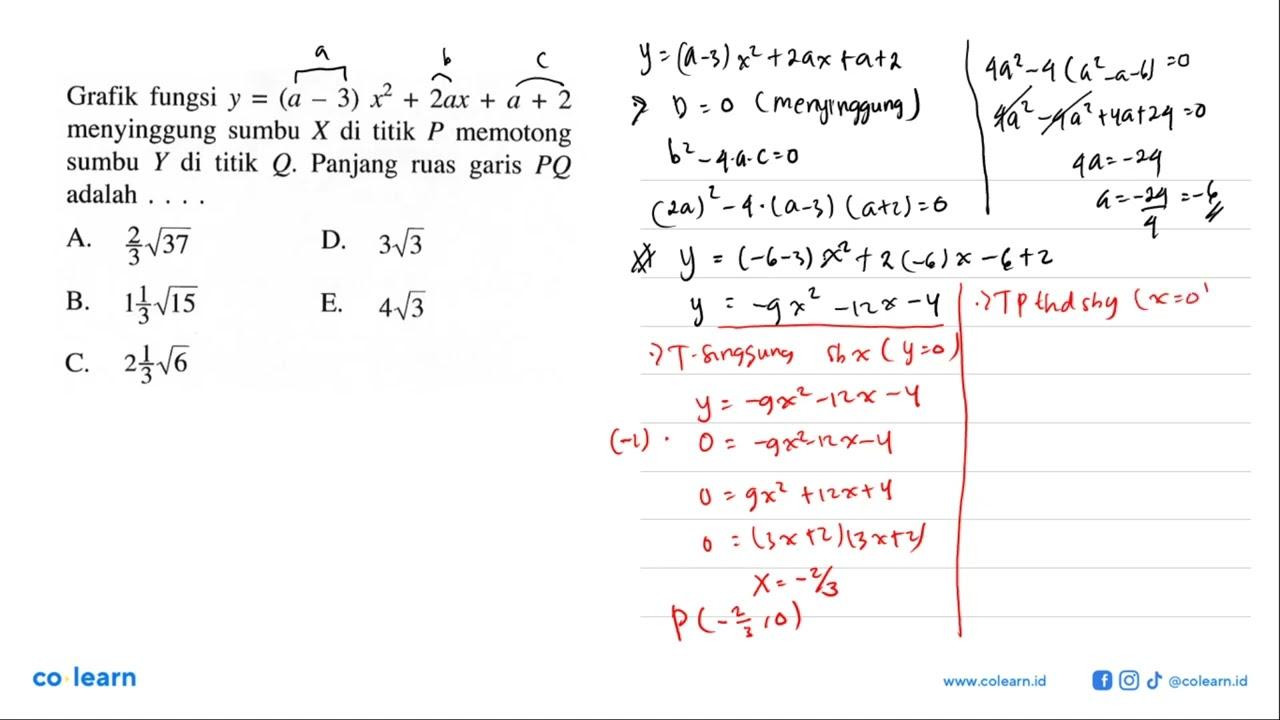 a b c
Grafik fungsi y = (a − 3) x² + 2ax + a + 2
menyinggung sumbu X di titik P memotong
sumbu Y di titik Q. Panjang ruas garis PQ
adalah . . . .
A. 2/3√37 D. 3√3
B. 1 1/3√15 E. 4√3
C. 2 1/3√6
y = (a-3) x² + 2ax + a + 2
D = 0 (menyinggung)
b² - 4.a.c = 0
(2a)² - 4.(a-3) (a+2) = 0
4a² - 4(a²-a-6) = 0
4a² - 4a² + 4a + 24 = 0
4a = -24
a = -24/4 = -6
y = (-6-3) x² + 2(-6) x - 6 + 2
y = -9x² - 12x - 4
T. Singgung sb x (y=0)
y = -9x² - 12x - 4
(-1) . 0 = -9x² - 12x - 4
0 = 9x² + 12x + 4
0 = (3x+2)(3x+2)
x = -2/3
P(-2/3, 0)
∴) TP thd sb y (x=0'
co·learn
www.colearn.id @colearn.id